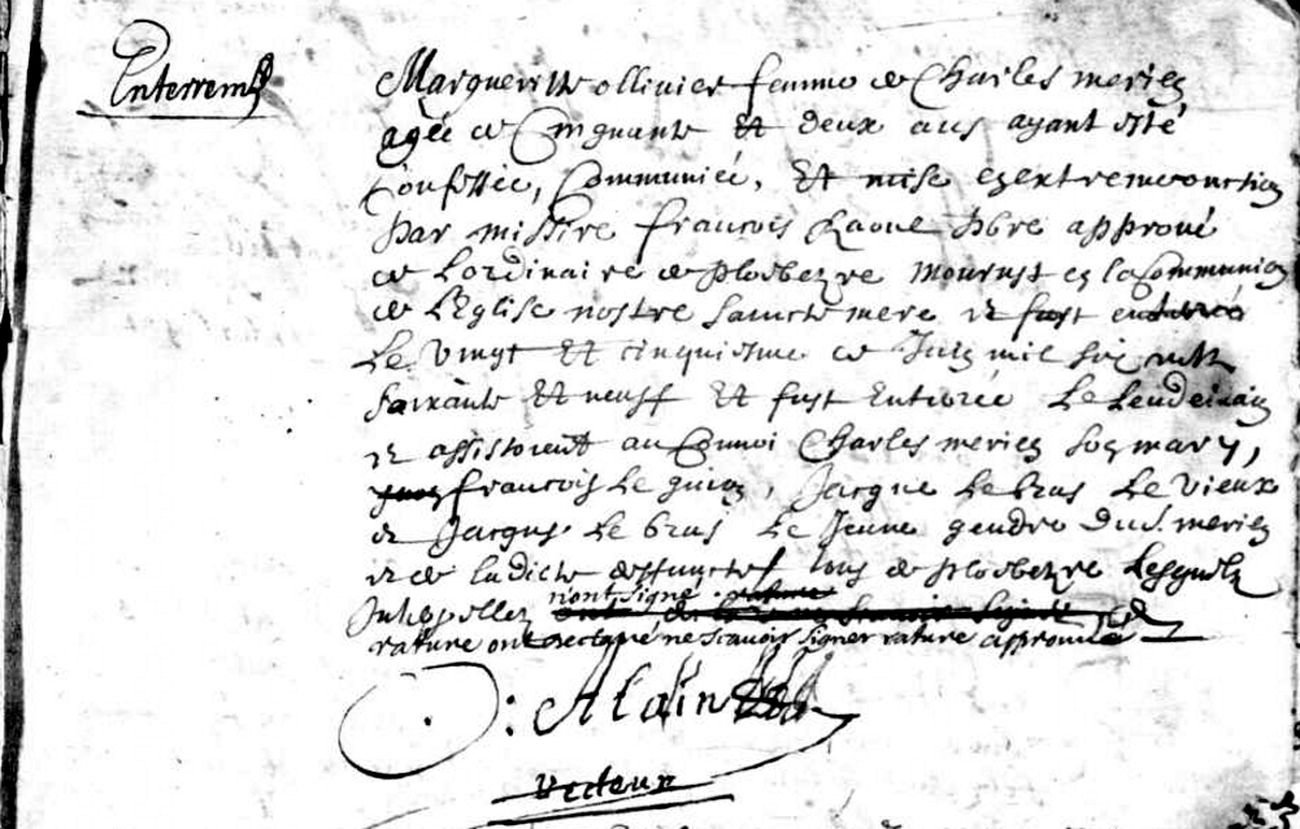 Enterremt
Margueritte ollivier femme de Charles merien
agée de Cinquante et deux ans ayant esté
Confessée, Communiée, Et mise en extremeonction
Par missire francois Raoul Pbre approuvé
de Lordinaire de Ploebezre mourust en la Communion
de LEglise nostre saincte mere et fust
Le vingt et cinquiesme de Juin mil six cents
soixante et neuff et fust Enterrée Le Lendemain
et assistoient au Convoi Charles merien son mary,
francois Le guien, Jacque Le bras Le vieux
et Jacques Le bras Le Jeune gendre dud. merien
et de Ladicte deffuncte tous de Ploebezre Lesquels
Interpellez n'ont signé
rature ont declaré ne scavoir signer rature approuvée
: Alain
Recteur